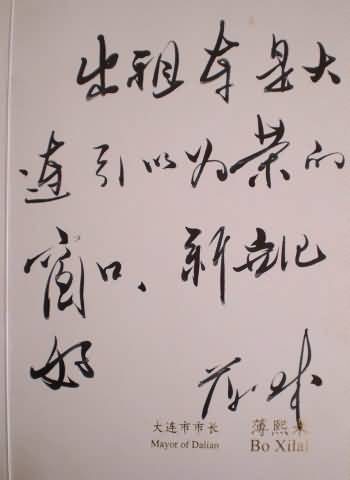 出租车是大
连引以为荣的
窗口、新世纪
好
大连市市长 薄熙来
Mayor of Dalian Bo Xilai